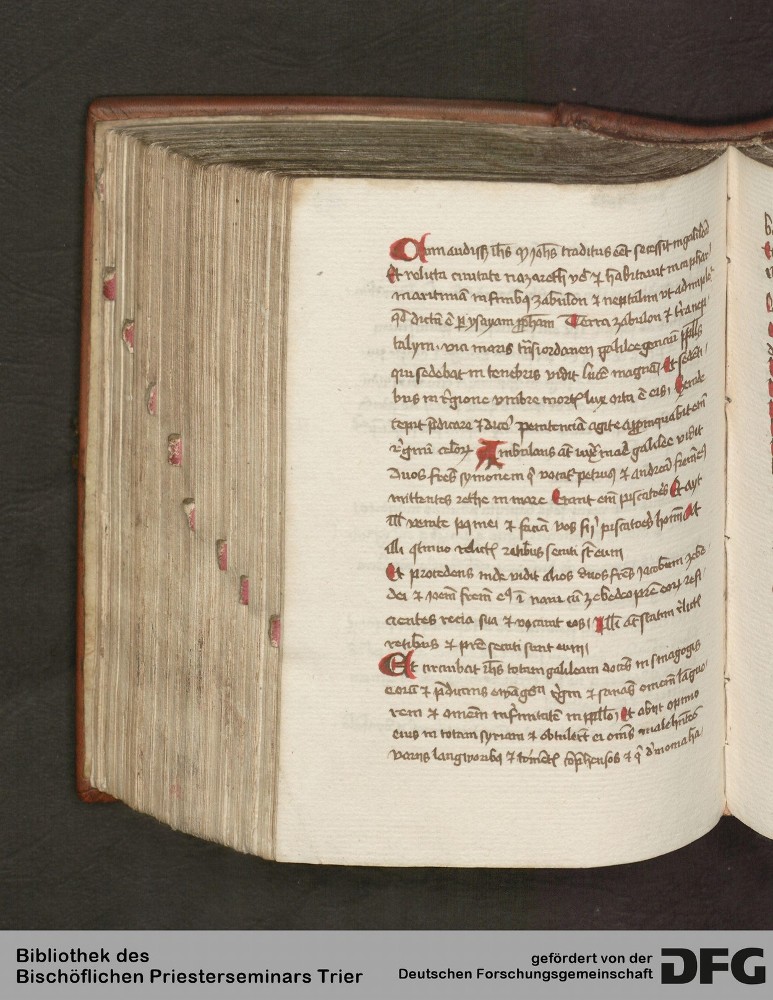 Cum audisset ihs qd iohes traditus eet secessit in galileā
Et relicta civitate nazareth vēit & habitavit in caphar
maritimā in finibus zabulon & neptalim ut adimple
qd dictū ē p ysayam pphetam Terra zabulon & terra nep
talym via maris trans iordanen galilee gencium ppls
qui sedebat in tenebris vidit lucē magnā Et sedēti
bus in regione umbre mortis lux orta ē eis Exinde
cepit p̄dicare & dicē penitenciā agite appropinquabit em
regnū celor Ambulans at iuxta mare galilee vidit
duos fres symonem q vocat petrus & andreā frem eius
mittentes rethe in mare Erant em piscatores Et ayt
illis venite p9 me & faciā vos fieri piscatores hominū At
illi qtinuo relictis retibus secuti st eum
Et procedens inde vidit alios duos fres Jacobum zebe
dei & ioem frem eius i navi cū zebedeo pre eorum refi
cientes recia sua & vocavit eos Illi at statim relictis
retibus & pre secuti sunt eum
Et circuibat ihs totam galileam docens in sinagogis
eorū & p̄dicans ewāgeliū regni & sanās omēm languo
rem & omēm infirmitatē in pplo Et abijt opinio
eius in totam syriam & obtulert ei oms male hntes
varijs languoribus & tormētis cōp̄hensos & q demonia ha
Bibliothek des
Bischöflichen Priesterseminars Trier
gefördert von der
Deutschen Forschungsgemeinschaft
DFG